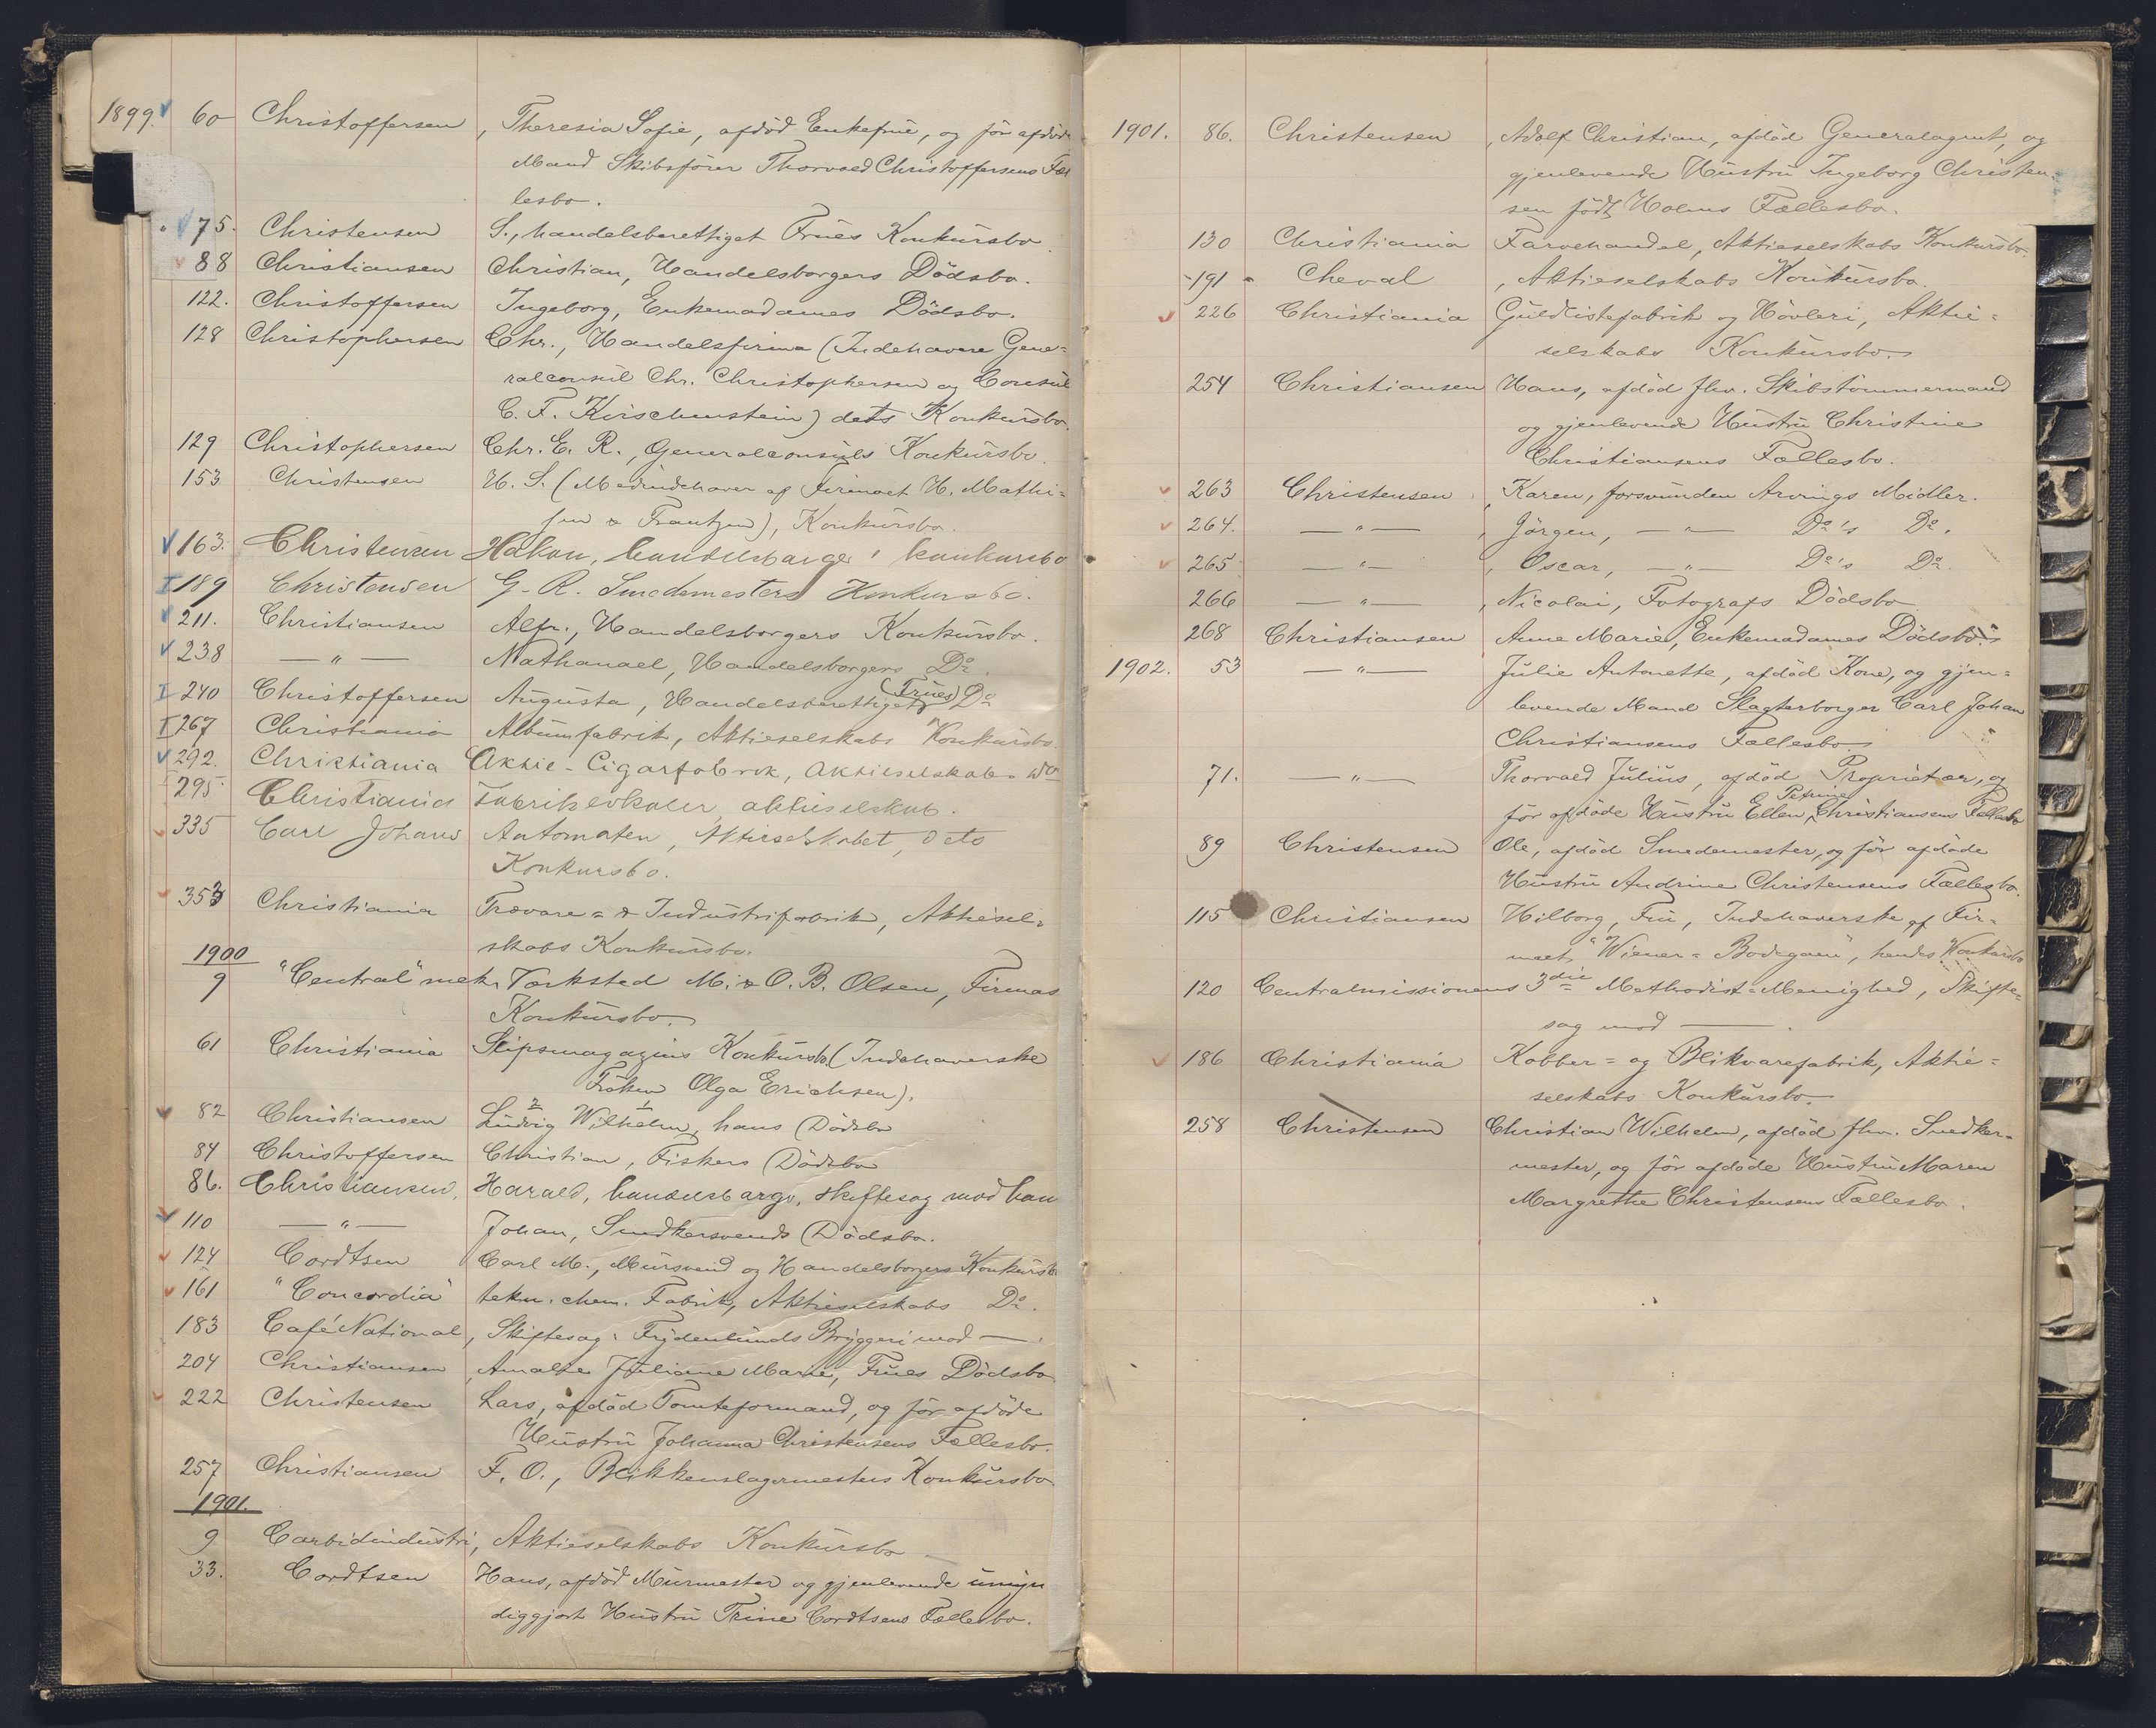 1899. 60 Christoffersen, Theresia Sofie, afdöd Enkefrue, og før afdöde
Mand Skibsfører Thorvald Christoffersens Fæl
lesbo.
" 75. Christensen S., handelsberettiget Frues Konkursbo
88 Christiansen Christian, Handelsborgers Dödsbo.
122. Christoffersen Ingeborg, Enkemadames Dödsbo.
128 Christophersen Chr., Handelsfirma (Indehavere Gene=
ralconsul Chr. Christophersen og Consul
C. F. Kirschenstein) dets Konkursbo.
129 Christophersen Chr. E. R., Generalconsuls Konkursbo.
153 Christensen H. S. (Medindehaver af Firmaet H. Mathi=
sen & Frantzen), Konkursbo.
163. Christensen Hakon, handelsborgers konkursbo
189 Christensen G. R. Smedemesters Konkursbo.
211. Christiansen Alfr., Handelsborgers Konkursbo.
238 —"— Nathanael, Handelsborgers Do.
240 Christoffersen Augusta, Handelsberettiget (Frues) Do
267 Christiania Albumfabrik, Aktieselskabs Konkursbo.
292. Christiania Aktie-Cigarfabrik, Aktieselskabs do
295 Christiania Fabriklokaler, aktieselskab.
335 Carl Johans Automaten, Aktieselskabet, dets
Konkursbo.
353 Christiania Trævare= & Industrifabrik, Aktiesel=
skabs Konkursbo.
1900
9 "Central" mek. Værksted M. & O. B. Olsen, Firmas
Konkursbo.
61 Christiania Slipsmagazins Konkursbo (Indehaverske
Frøken Olga Erichsen).
82 Christiansen Ludvig 2 Wilhelm 1, hans Dödsbo
84 Christoffersen Christian, Fiskers Dödsbo
86. Christiansen, Harald, handelsborger, skiftesag mod ham
110 —"— Johan, Snedkersvends Dödsbo.
124 Cordtsen Carl M., Mursvend og Handelsborgers Konkursbo
161 "Concordia" tekn. chem. Fabrik, Aktieselskabs Do.
183 Café National, Skiftesag: Frydenlunds Bryggeri mod — .
204 Christiansen, Amalie Juliane Marie, Frues Dödsbo
222 Christensen Lars, afdöd Tomteformand, og før afdöde
Hustru Johanna Christensens Fællesbo.
257 Christiansen F. O., Blikkenslagermesters Konkursbo
1901.
9 Carbidindustri, Aktieselskabs Konkursbo
33. Cordtsen Hans, afdöd Murmester og gjenlevende umyn
diggjort Hustru Trine Cordtsens Fællesbo.
1901. 86. Christensen, Adolf Christian, afdöd Generalagent, og
gjenlevende Hustru Ingeborg Christen=
sen født Holms Fællesbo.
130 Christiania Farvehandel, Aktieselskabs Konkursbo.
191 Cheval, Aktieselskabs Konkursbo.
226 Christiania Guldlistefabrik og Høvleri, Aktie=
selskabs Konkursbo.
254 Christiansen Hans, afdöd fhv. Skibstømmermand
og gjenlevende Hustru Christine
Christiansens Fællesbo.
263 Christensen, Karen, forsvunden Arvings Midler.
264. —"—, Jörgen, —"— Do's Do.
265 —"—, Oscar, —"— Do's Do.
266 —"—, Nicolai, Fotografs Dödsbo
268 Christiansen Anne Marie, Enkemadames Dödsbo
1902. 53 —"— Julie Antonette, afdöd Kone, og gjen=
levende Mand Slagterborger Carl Johan
Christiansens Fællesbo
71. —"— Thorvald Julius, afdöd Proprietær, og
før afdöde Hustru Ellen Petrine Christiansens Fællesbo
89 Christensen Ole, afdöd Smedemester, og før afdöde
Hustru Andrine Christensens Fællesbo.
115 Christiansen Hilborg, Fru, Indehaverske af Fir=
maet "Wiener=Bodegaen", hendes Konkursbo
120 Centralmissionens 3die Methodist=Menighed, Skifte=
sag mod — .
186 Christiania Kobber= og Blikvarefabrik, Aktie=
selskabs Konkursbo.
258 Christensen Christian Wilhelm, afdöd fhv. Snedker=
mester, og før afdöde Hustru Maren
Margrethe Christensens Fællesbo.